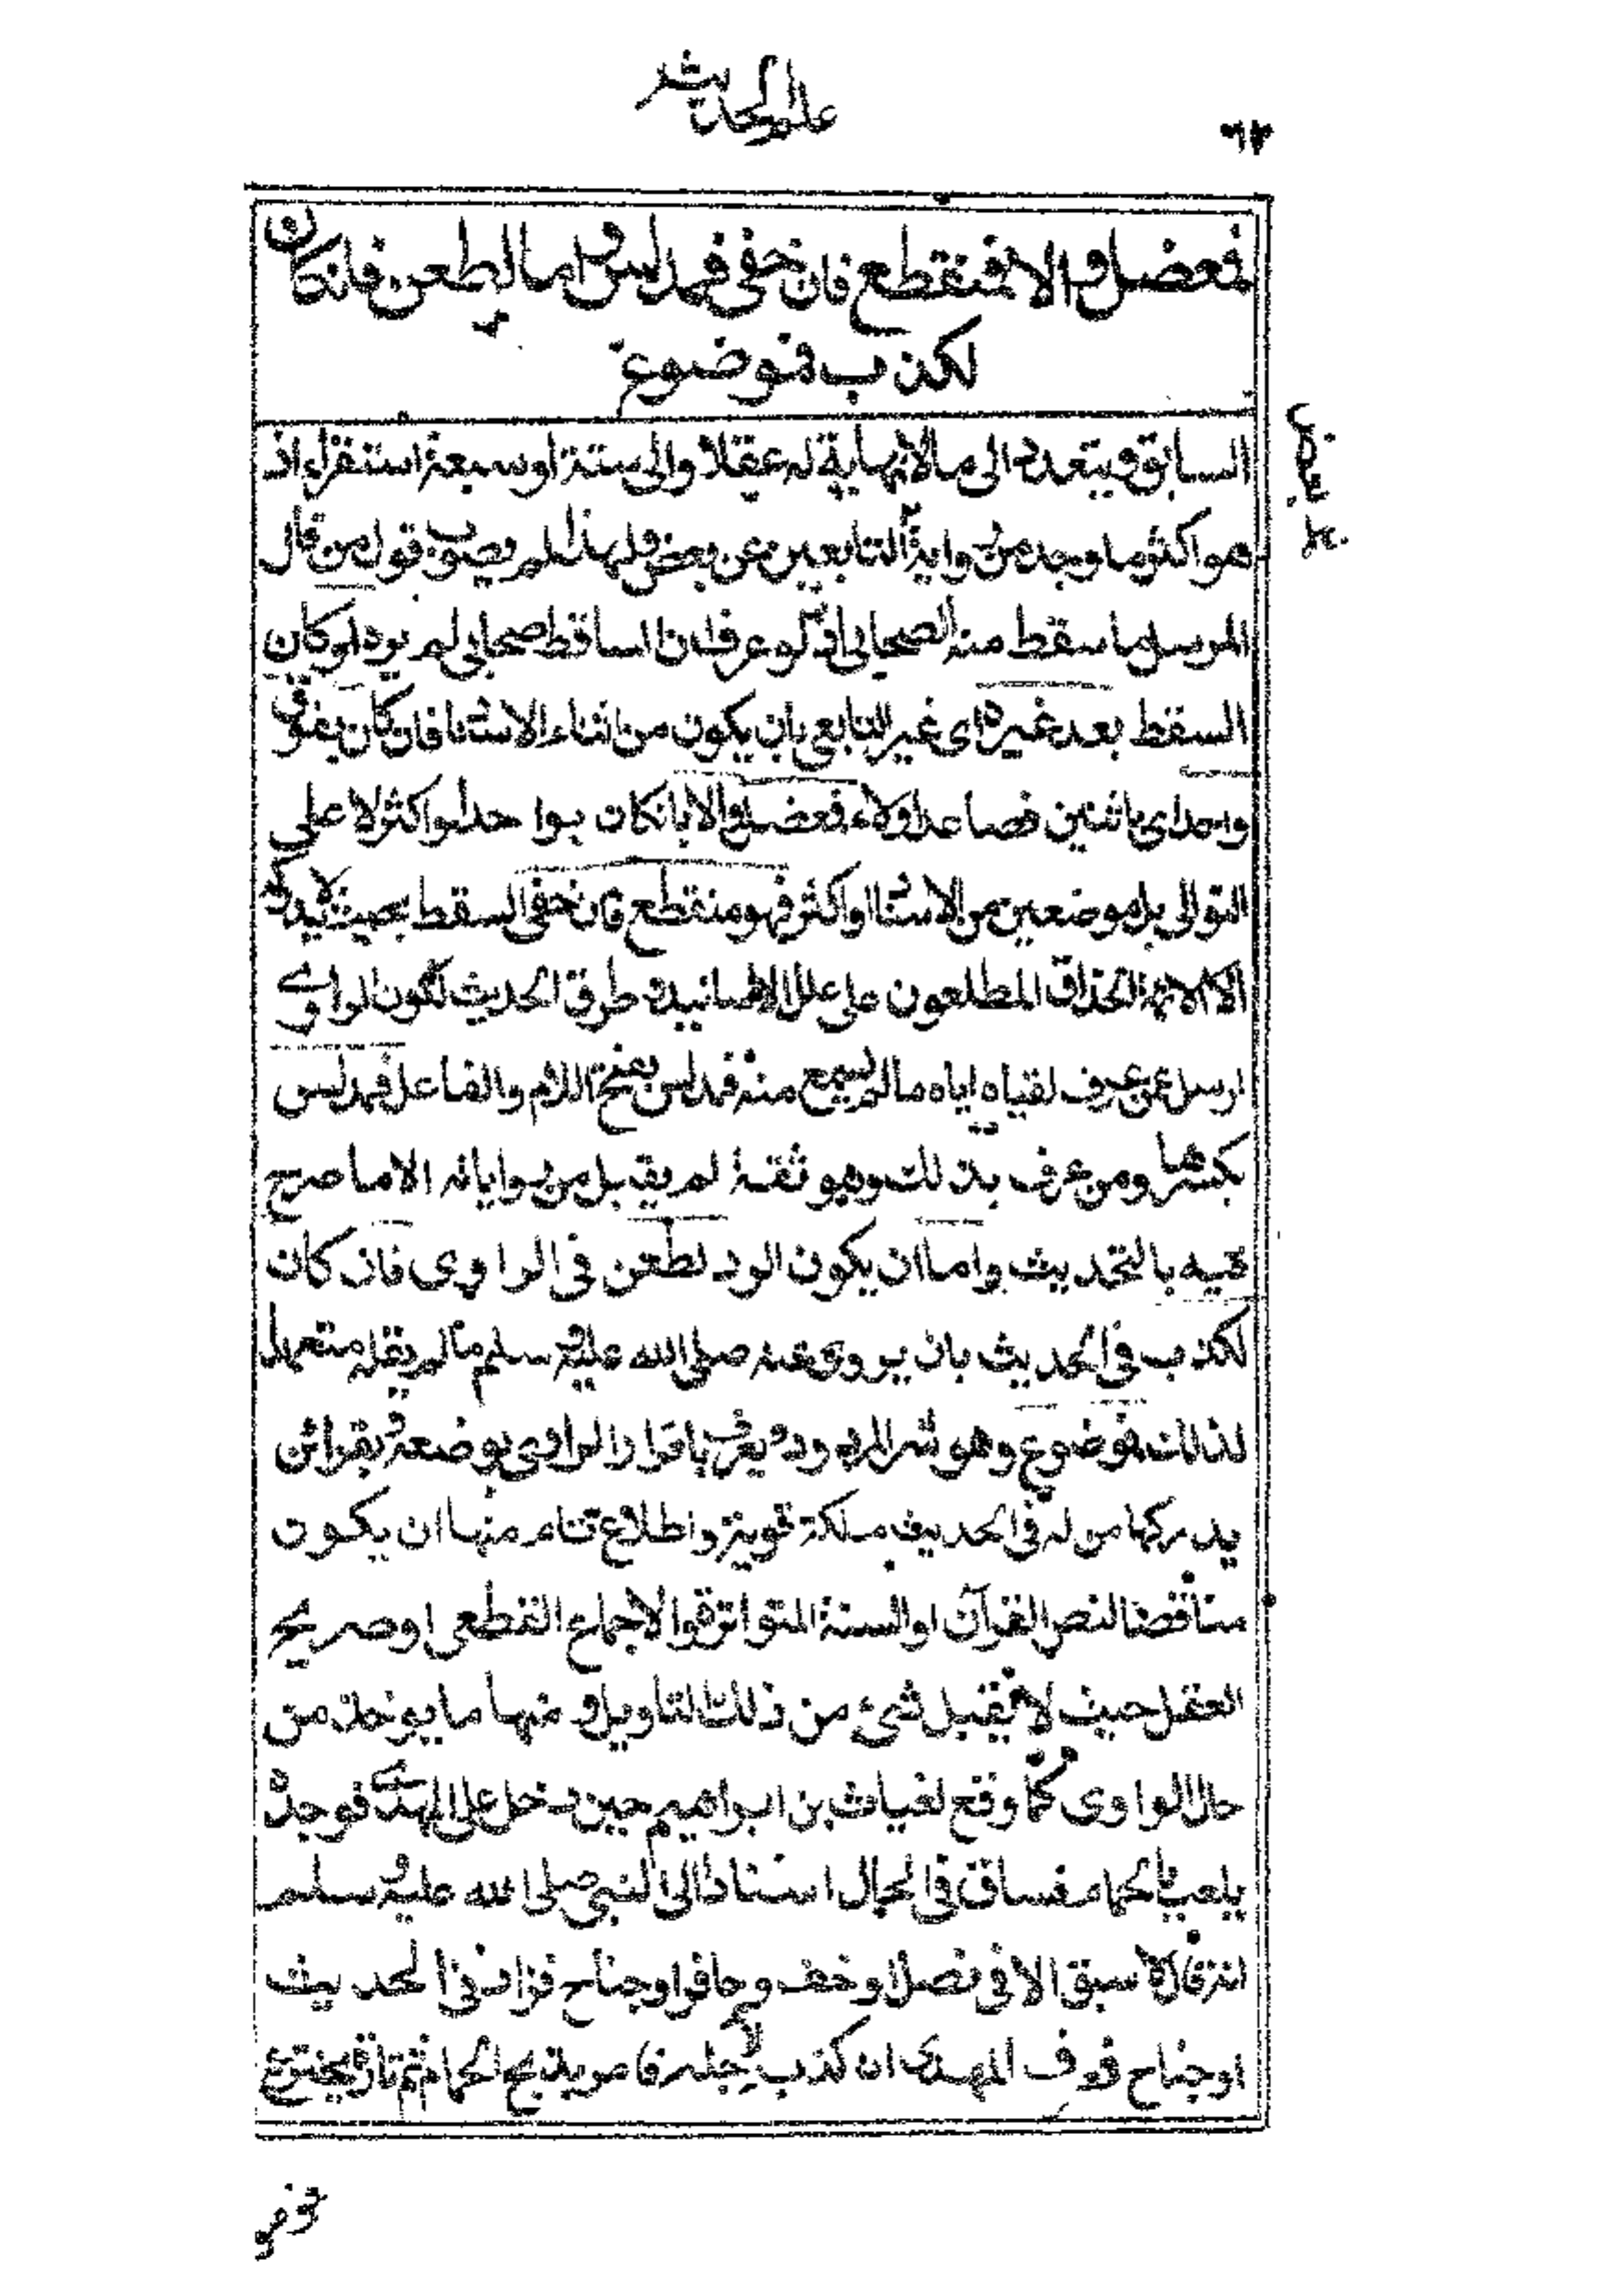 علم الحديث
٦٢
فمعضل والا فمنقطع فان خفي فمدلس واما لطعن فان كان
لكذب فموضوع
السابق فيتعدد الى مالا نهاية له عقلا والى ستة او سبعة استقراء اذ
هو اكثر ما وجد من رواية التابعين عن بعض ولهذا لم يصوب قول من قال
المرسل ما سقط منه الصحابي اذ لو عرف ان الساقط صحابي لم يرد او كان
السقط بعد غيره اى غير التابعي بان يكون من اثناء الاسناد فان كان بفوق
واحد اى باثنين فصاعدا ولاء فمعضل والا بان كان بواحد او اكثر لا على
التوالى بل موضعين من الاسناد او اكثر فهو منقطع فان خفي السقط بحيث لا يدركه
الا الائمة الحذاق المطلعون على علل الاسانيد وطرق الحديث لكون الراوي
ارسل عن عرف لقياه اياه ما لم يسمع منه فمدلس بفتح اللام والفاعل فمدلس
بكسرها ومن عرف بذلك وهو ثقة لم يقبل من رواياته الا ما صرح
فيه بالتحديث واما ان يكون الرد لطعن في الراوى فان كان
لكذب في الحديث بان يروى عنه صلى الله عليه وسلم ما لم يقله متعمدا
لذلك فموضوع وهو شر المردود ويعرف باقرار الراوى بوضعه وبقرائن
يدركها من له في الحديث ملكة قوية واطلاع تام منها ان يكون
مناقضا لنص القرآن او السنة المتواترة او الاجماع القطعى او صريح
العقل حيث لا يقبل شئ من ذلك التاويل ومنها ما يوخذ من
حال الراوى كما وقع لغياث بن ابراهيم حين دخل على المهدى فوجده
يلعب بالحمام فساق في الحال اسنادا الى النبى صلى الله عليه وسلم
انه قال لا سبق الا في نصل او خف او حافر او جناح فزاد في الحديث
او جناح فعرف المهدى انه كذب لاجله فامر بذبح الحمام ثم تارة يخترع